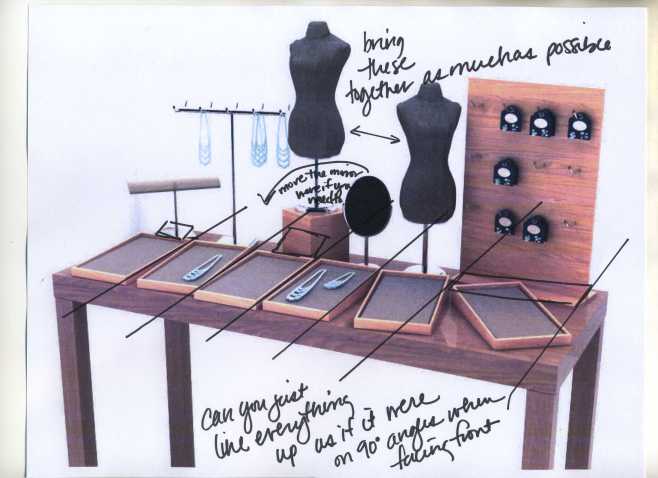 bring
these
together as much as possible
move the mirror
here if you
need to
can you just
line everything
up as if it were
on 90° angles when
facing front